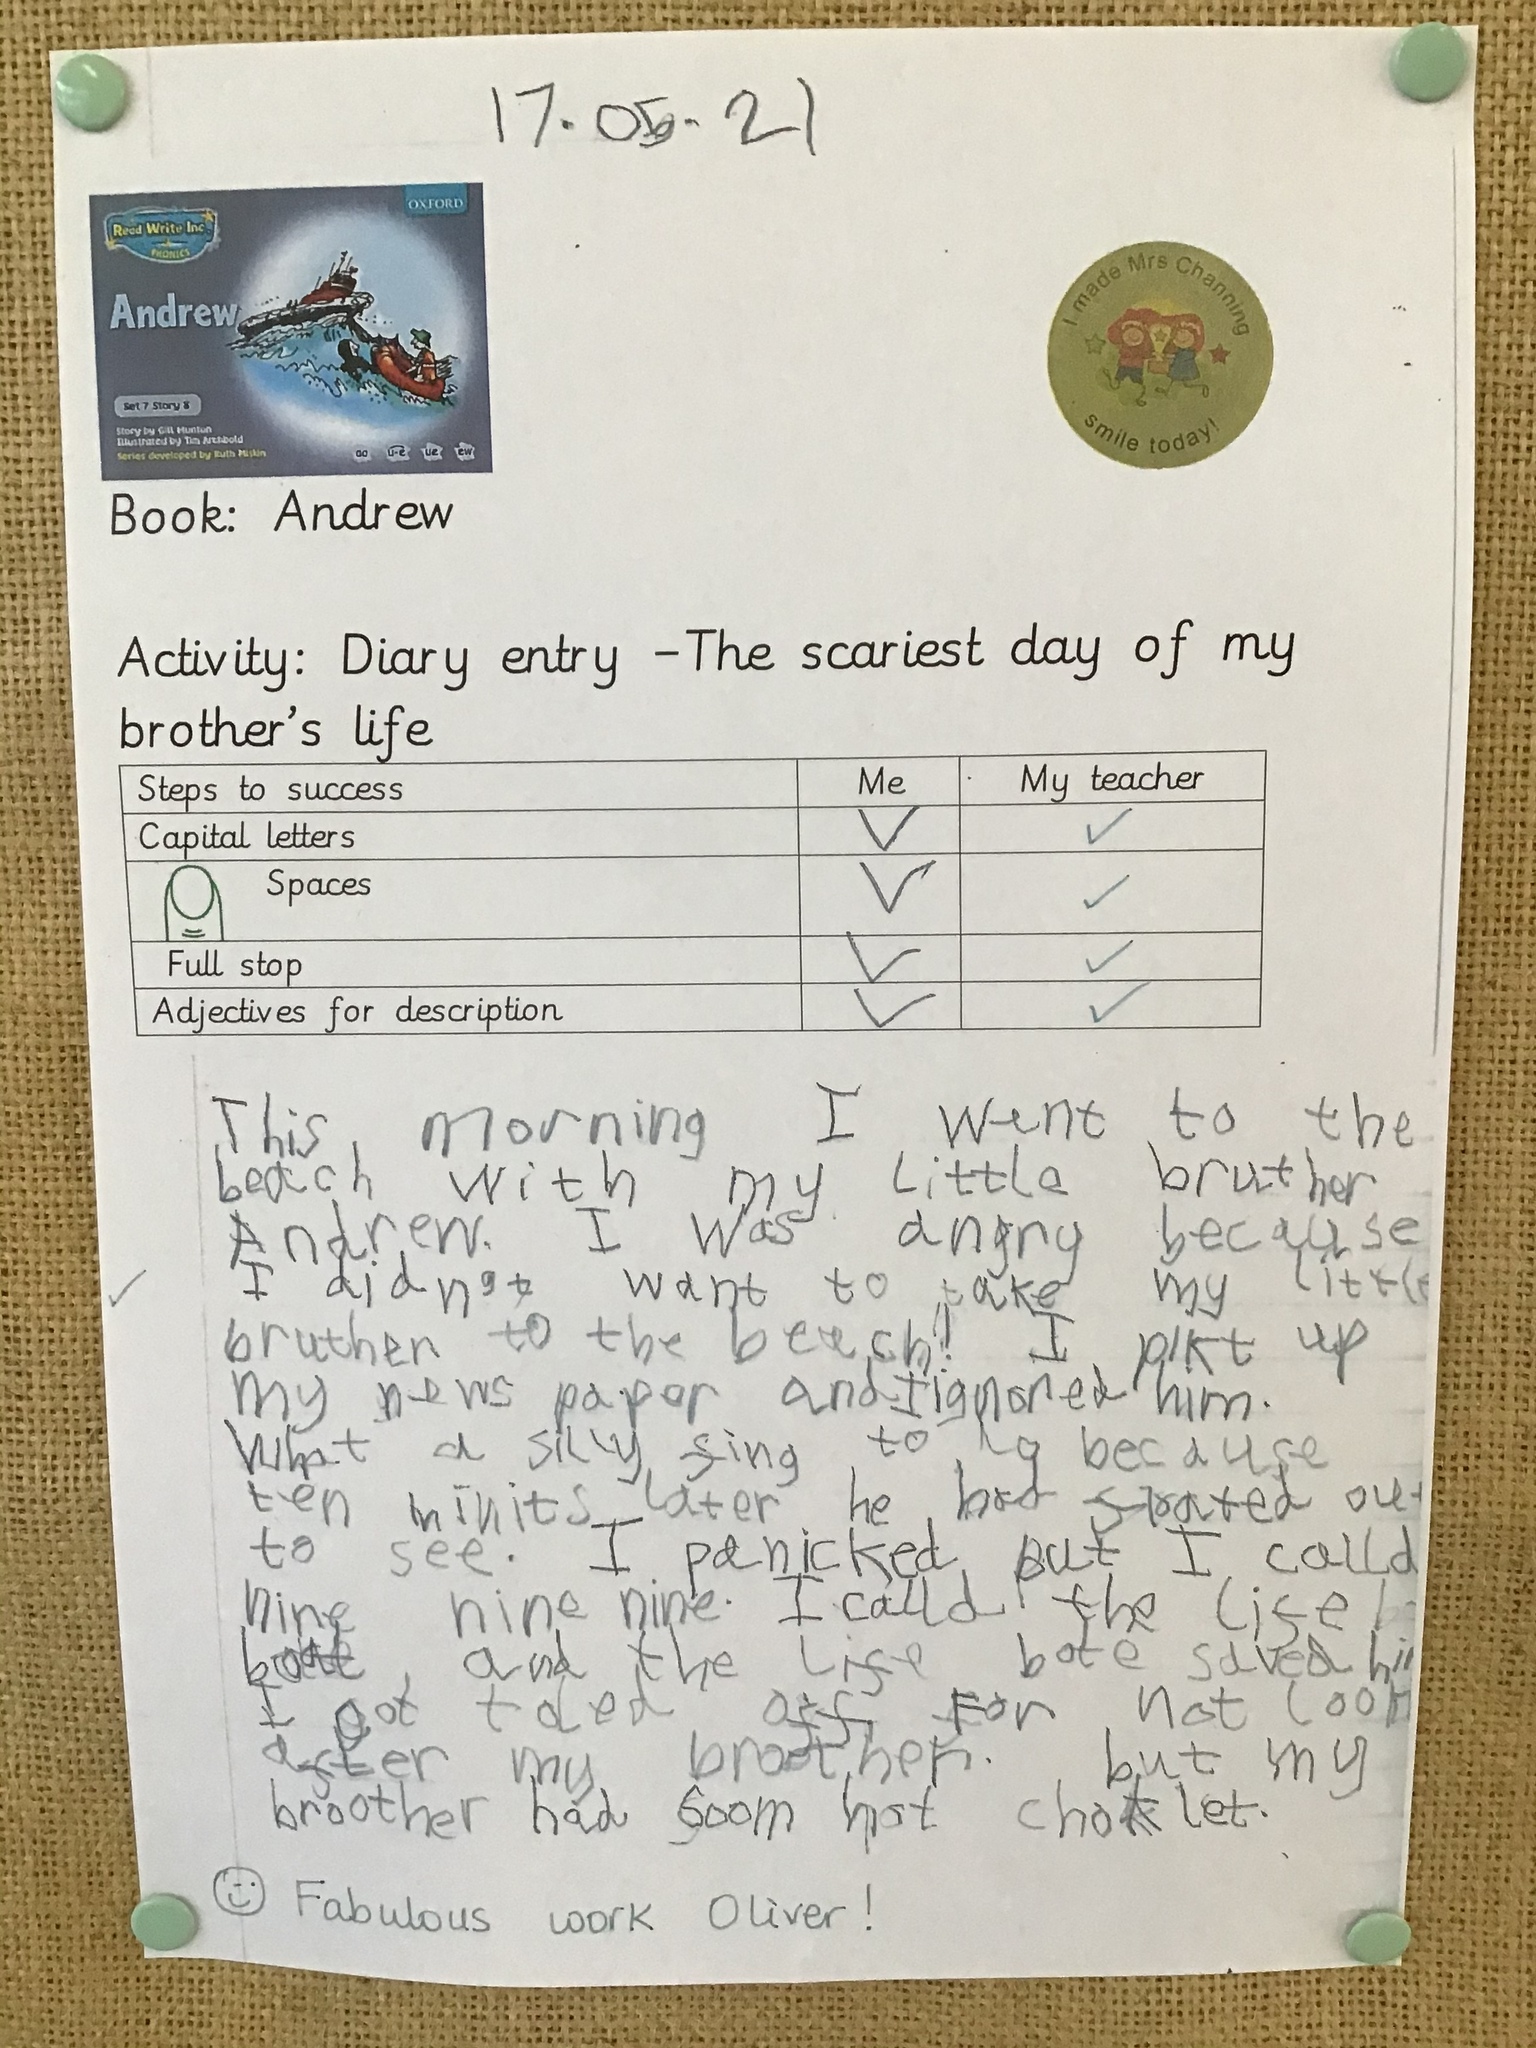 17.05.21
OXFORD
Read Write Inc.
PHONICS
Andrew
Set 7 Story 8
Story by Gill Munton
Illustrated by Tim Archbold
Series developed by Ruth Miskin
oo u-e ue ew
I made Mrs Channing
smile today!
Book: Andrew
Activity: Diary entry -The scariest day of my
brother's life
Steps to success Me My teacher
Capital letters
Spaces
Full stop
Adjectives for description
This morning I went to the
beach with my little bruther
Andrew. I was angry because
I didn't want to take my little
bruther to the beech! I pikt up
my news papor and I ignored him.
What a silly fing to because
ten minits later he had out
to see. I panicked but I calld
nine nine nine. I calld the life
and the life bote saved
I got toled off for not
after my broother. but my
broother had soom hot choklet.
Fabulous work Oliver!